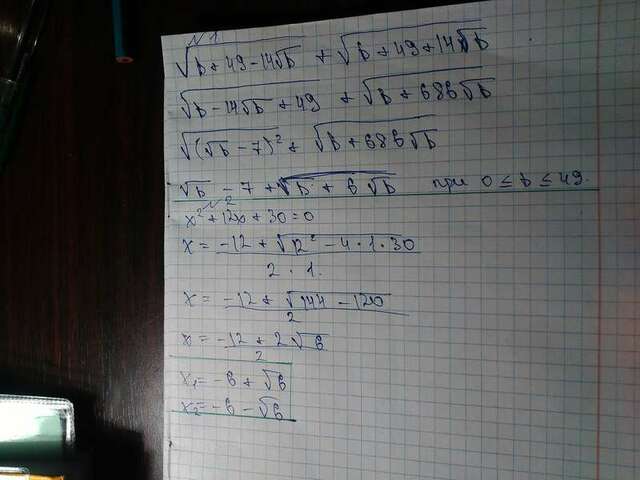 №1
√(b + 49 - 14√b) + √(b + 49 + 14√b)
√(b - 14√b + 49) + √(b + 686√b)
√((√b - 7)²) + √(b + 686√b)
√b - 7 + √(b + 6√b) при 0 ≤ b ≤ 49.
№2
x² + 12x + 30 = 0
x = (-12 + √(12² - 4 · 1 · 30)) / (2 · 1.)
x = (-12 + √(144 - 120)) / 2
x = (-12 + 2√6) / 2
x₁ = -6 + √6
x₂ = -6 - √6